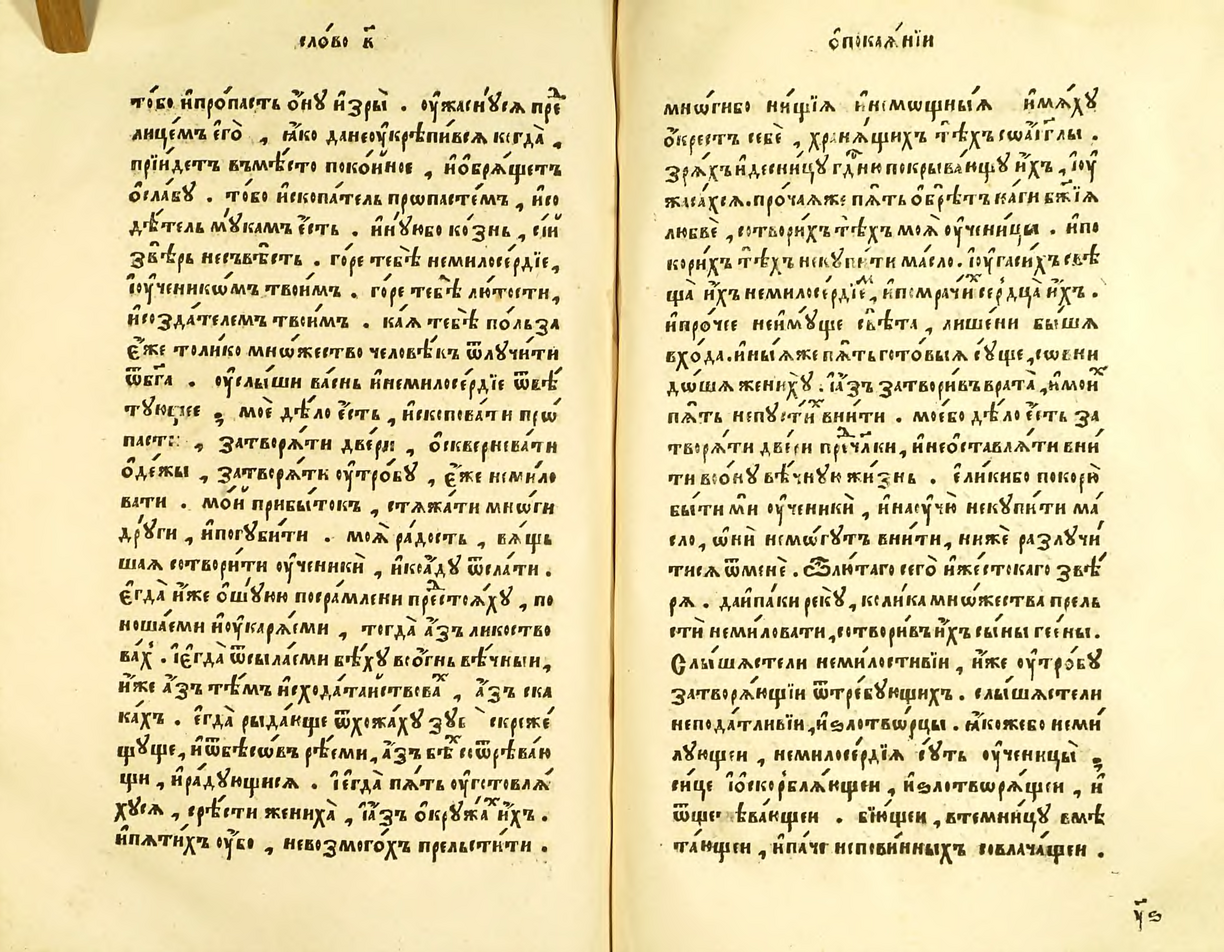 сло́во к҃
то́бо и҆про́пасть ѻ҆́нꙋ и҆зры̀ . ᲂу҆жаснꙋ́сѧ преⷣ
лице́мъ є҆го̀ , ꙗ҆́ко данеᲂу҆крѣпи́всѧ когда̀ ,
прїи́детъ въмѣ́сто поко́йное , и҆ѡ҆брѧ́щетъ
ѻ҆сла́бꙋ . то́бо и҆скопа́тель прѡпасте́мъ , и҆со
дѣ́тель мꙋ́камъ є҆́сть . и҆нꙋ́юбо ко́знь , сі́й
ꙁвѣ́рь несъвѣ́сть . го́ре тебѣ̀ немилосе́рдїе,
і҆ᲂу҆ченикѡ́мъ твои́мъ . го́ре тебѣ̀ лю́тости,
и҆соꙁда́телемъ твои́мъ . ка́ѧ тебѣ̀ по́льꙁа
є҆́же толи́ко мно́жество человѣ́къ ѿлꙋчи́ти
ѿбг҃а . ᲂу҆слы́ши ва́снь и҆немилосе́рдїе ѿвѣ́
тꙋющее , моѐ дѣ́ло є҆́сть , и҆скопова́ти прѡ́
пасти , ꙁатворѧ́ти две́ри , ѻ҆скверневати
ѻ҆де́жы , ꙁатворѧ́ти ᲂу҆тро́бꙋ , є҆́же немило
вати . мо́й прибы́токъ , стѧжа́ти мнѡ́ги
дрꙋ́ги , и҆погꙋби́ти . моѧ̀ ра́дость , вѧ́щь
шаѧ сотвори́ти ᲂу҆ченикѝ , и҆коа́дꙋ ѿсла́ти .
є҆гда̀ и҆́же ѻ҆шꙋ́юю посра́млени преⷣстоѧ́хꙋ , по
ноша́еми и҆ᲂу҆карѧ́еми , тогда̀ а҆́ꙁъ ликоство
ва́х . і҆є҆гда̀ ѿсыла́еми бѣ́хꙋ во́ѻгнь вѣ́чныи,
и҆́же а҆́ꙁъ тѣ́мъ и҆схода́тайствоваⷯ , а҆́ꙁъ ска
ка́хъ . є҆гда̀ рыда́юще ѿхожа́хꙋ скреже́
щꙋще, и҆ѿбѣсѡ́въ рѣ́еми, а҆́ꙁъ бѣⷯ соѿрѣва́ю
щи , и҆ра́дꙋющисѧ . і҆є҆гда̀ пѧ́ть ᲂу҆готовлѧ́
хꙋсѧ , срѣ́сти жениха̀ , і҆а҆́ꙁъ ѻ҆крꙋжа́ⷯ и҆́хъ .
и҆пѧти́хъ ᲂу҆́бо , невоꙁмого́хъ прельсти́ти .
ѻ҆покаѧ́нїи
мнѡ́гибо ни́щїѧ и҆не́мощныѧ и҆мѧ́хꙋ
ѻ҆́крестъ себѐ , хранѧ́щихъ тѣ́хъ соа҆́гг҃лы .
ꙁрѧ́хъ и҆десни́цꙋ гд҇ню покрыва́ющꙋ и҆́хъ , і҆ᲂу҆
жаса́хсѧ . про́чаѧже пѧ́ть ѻ҆брѣ́тъ на́ги бж҃їѧ
любвѐ , сотвори́хъ тѣ́хъ моѧ̀ ᲂу҆ченицы̀ . и҆по
кори́хъ тѣ́хъ некꙋпи́ти ма́сло. і҆ᲂу҆гаси́хъ свѣ
ща̀ и҆́хъ немилосе́рдїеⷨ, и҆помрачи́ⷯ сердца̀ и҆́хъ .
и҆про́чее неи҆мꙋ́ще свѣ́та , лише́ни бы́шѧ
вхо́да. и҆ны́ѧже пѧ́ть гото́выѧ сꙋ́ще , совни
до́шѧ женихꙋ̀ . і҆а҆́ꙁъ ꙁатвори́въ врата̀ , и҆мои́ⷯ
пѧ́ть непꙋсти́ⷯ вни́ти . мое́бо дѣ́ло є҆́сть ꙁа
творѧ́ти две́ри преⷣча́лки, и҆неѻ҆ставлѧ́ти вни́
ти воѻ҆́нꙋ вѣ́чнꙋю жи́ꙁнь . є҆ли́кибо покорѝ
бы́ти ми ᲂу҆ченикѝ , и҆наᲂу҆чю̀ некꙋпи́ти ма́
сло, ѡ҆нѝ немо́гꙋтъ вни́ти, нижѐ раꙁлꙋчи́
тисѧ ѿменѐ . Ѽлю́таго сего̀ и҆жесто́каго ꙁвѣ́
рѧ . дапа́ки рекꙋ̀ , коли́ка мно́жества прель
стѝ немилова́ти, сотвори́въ и҆́хъ сы́ны гее́ны.
Слы́шѧстели немилостиві́и , и҆́же ᲂу҆тро́бꙋ
ꙁатворѧ́ющїи ѿтре́бꙋющихъ . слы́шѧстели
непода́тливїи, и҆ѕлотво́рцы . ꙗ҆́кожебо неми́
лꙋющеи , немилосе́рдїѧ сꙋ́ть ᲂу҆ченицы̀ ,
си́це і҆ѻ҆скорблѧ́ющеи , и҆ѕлотворѧ́щеи , и҆
бїю́щеи , втемни́цꙋ вмѣ
та́ющеи , и҆па́че непови́нныхъ совлача́щеи .
у҃ѕ